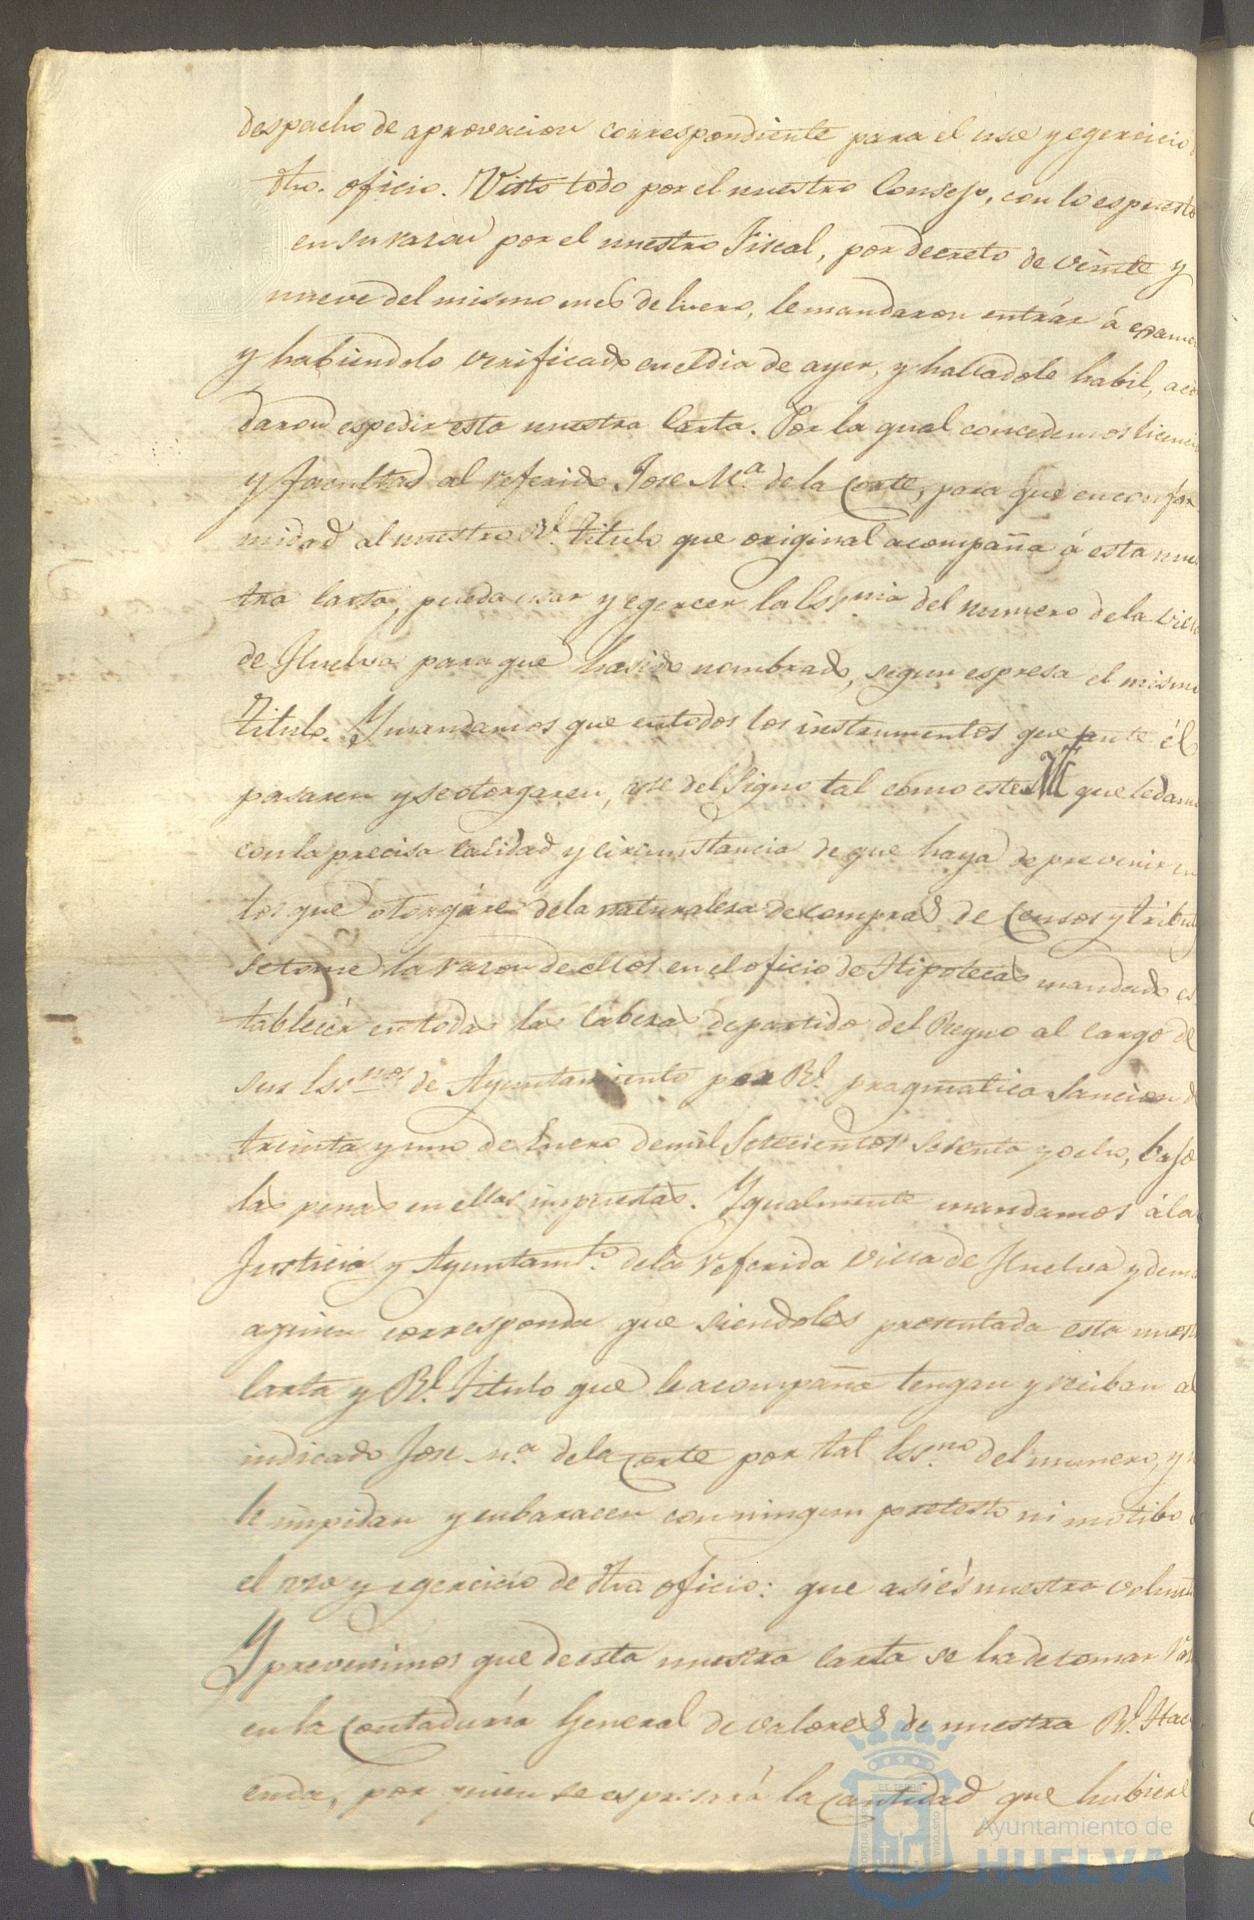 despacho de aprovacion correspondiente para el uso y egercicio
dho. oficio. Visto todo por el nuestro Consejo, con lo espuesto
en su razon por el nuestro Fiscal, por decreto de veinte y
nueve del mismo mes de Enero, le mandaron entrár á examen
y habiendolo verificado en el dia de ayer, y halladole habil, acor
daron espedir esta nuestra Carta. Por la qual concedemos licencia
y facultad al referido Jose M.ª de la Corte, para que en confor
midad al nuestro R.l titulo que original acompaña á esta nues
tra Carta, pueda usar y egercer la Essnia del numero de la villa
de Huelva para que ha sido nombrado, segun espresa el mismo
titulo. Y mandamos que en todos los instrumentos que ante él
pasaren y se otorgaren, use del Signo tal como este que le damos
con la precisa calidad y circunstancia de que haya de prevenir en
los que otorgáre de la naturaleza de compras de Censos y tributos
se tome la razon de ellos en el oficio de Hipotecas mandado es
tablecér en todas las Cabezas de partido del Reyno al cargo de
sus Essnos de Ayuntamiento por R.l pragmatica Sancion de
treinta y uno de Enero de mil Setecientos sesenta y ocho, bajo
las penas en ellas impuestas. Igualmente mandamos á la
Justicia y Ayuntam.to de la referida villa de Huelva y demas
a quien corresponda que siendoles presentada esta nuestra
Carta y R.l Titulo que le acompaña tengan y reciban al
indicado Jose M.ª de la Corte por tal Essno del numero, y no
le impidan y embaracen con ningun pretesto ni motibo
el uso y egercicio de dho oficio: que asi es nuestra volunt
Y prevenimos que de esta nuestra Carta se ha de tomar raz
en la Contaduría General de valores de nuestra R.l Haci
enda, por quien se espresará la Cantidad que hubiere
Ayuntamiento de
HUELVA